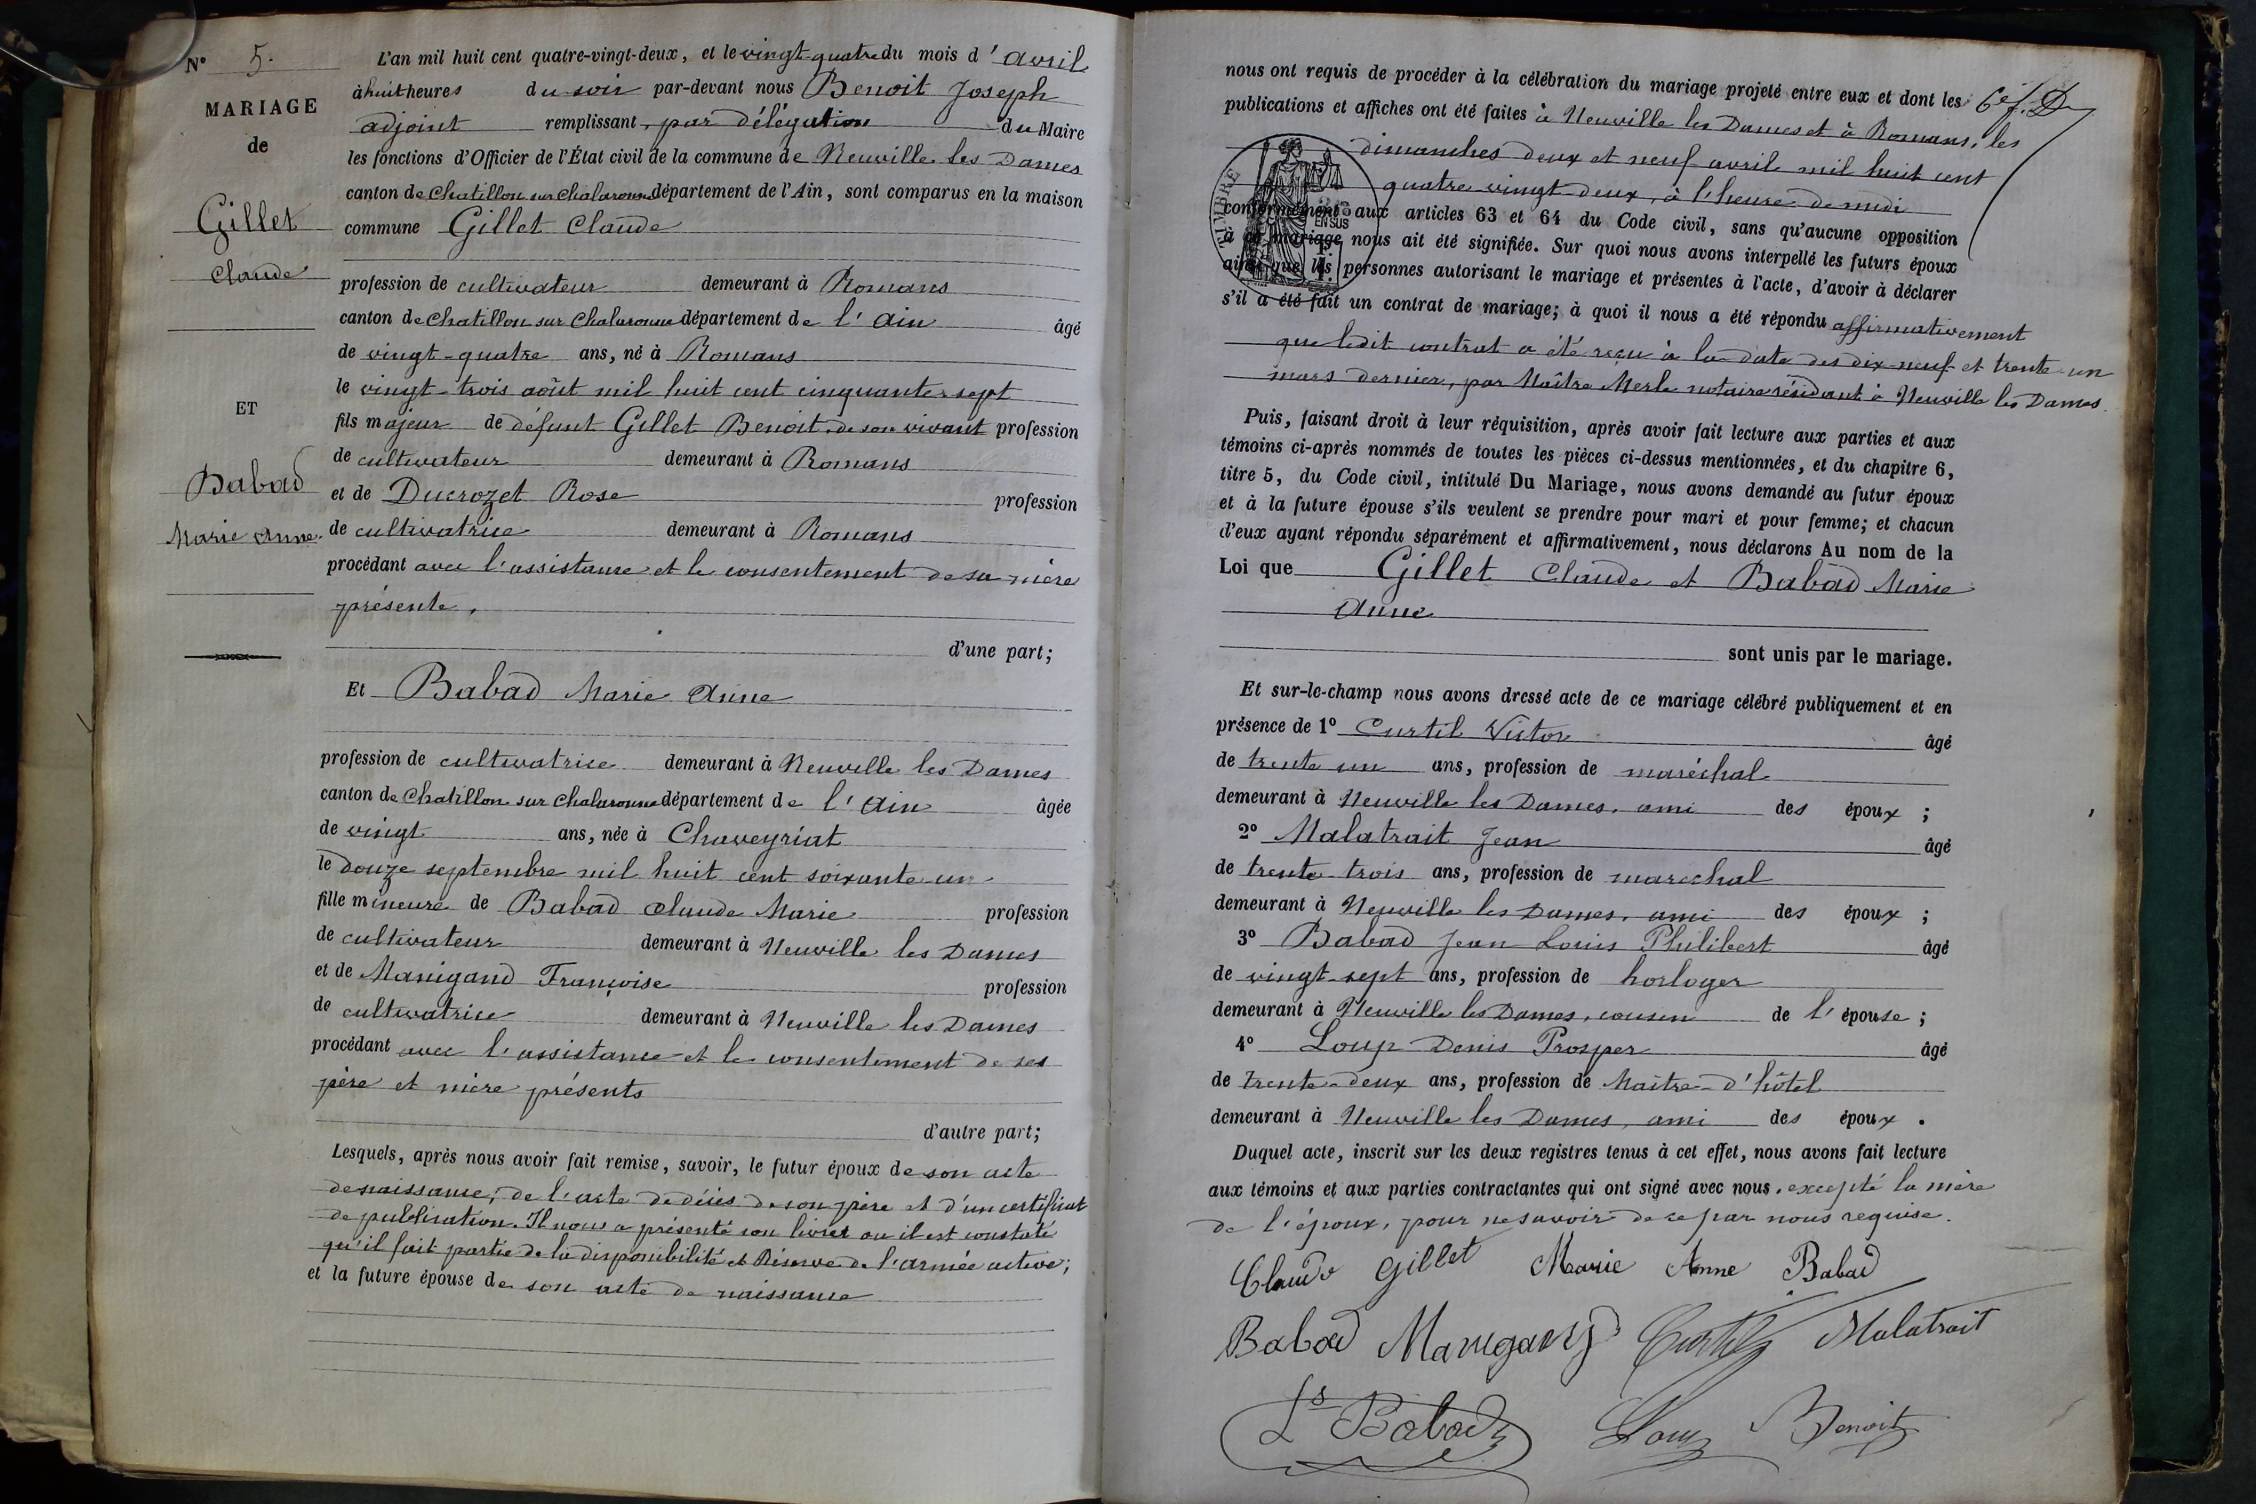 N° 5.
MARIAGE
de
Gillet
Claude
ET
Babad
Marie Anne.
L'an mil huit cent quatre-vingt-deux, et le vingt-quatre du mois d'avril
à huit heures du soir par-devant nous Benoit Joseph
adjoint remplissant, par délégation du Maire
les fonctions d'Officier de l'État civil de la commune de Neuville les Dames
canton de Chatillon sur Chalaronne département de l'Ain, sont comparus en la maison
commune Gillet Claude
profession de cultivateur demeurant à Romans
canton de Chatillon sur Chalaronne département de l'Ain âgé
de vingt-quatre ans, né à Romans
le vingt-trois août mil huit cent cinquante-sept
fils majeur de défunt Gillet Benoit, de son vivant profession
de cultivateur demeurant à Romans
et de Ducrozet Rose profession
de cultivatrice demeurant à Romans
procédant avec l'assistance et le consentement de sa mère
présente,
d'une part;
Et Babad Marie Anne
profession de cultivatrice demeurant à Neuville les Dames
canton de Chatillon sur Chalaronne département de l'Ain âgée
de vingt ans, née à Chaveyriat
le douze septembre mil huit cent soixante-un
fille mineure de Babad Claude Marie profession
de cultivateur demeurant à Neuville les Dames
et de Manigand Françoise profession
de cultivatrice demeurant à Neuville les Dames
procédant avec l'assistance et le consentement de ses
père et mère présents
d'autre part;
Lesquels, après nous avoir fait remise, savoir, le futur époux de son acte
de naissance, de l'acte de décès de son père et d'un certificat
de publication. Il nous a présenté son livret où il est constaté
qu'il fait partie de la disponibilité et Réserve de l'armée active;
et la future épouse de son acte de naissance
nous ont requis de procéder à la célébration du mariage projeté entre eux et dont les
publications et affiches ont été faites à Neuville les Dames et à Romans, les
dimanches deux et neuf avril mil huit cent
quatre-vingt-deux, à l'heure de midi
conformément aux articles 63 et 64 du Code civil, sans qu'aucune opposition
à ce mariage nous ait été signifiée. Sur quoi nous avons interpellé les futurs époux
ainsi que les personnes autorisant le mariage et présentes à l'acte, d'avoir à déclarer
s'il a été fait un contrat de mariage; à quoi il nous a été répondu affirmativement
que ledit contrat a été reçu à la date des dix-neuf et trente-un
mars dernier, par Maître Merle notaire résidant à Neuville les Dames.
TIMBRE
EN SUS
Puis, faisant droit à leur réquisition, après avoir fait lecture aux parties et aux
témoins ci-après nommés de toutes les pièces ci-dessus mentionnées, et du chapitre 6,
titre 5, du Code civil, intitulé Du Mariage, nous avons demandé au futur époux
et à la future épouse s'ils veulent se prendre pour mari et pour femme; et chacun
d'eux ayant répondu séparément et affirmativement, nous déclarons Au nom de la
Loi que Gillet Claude et Babad Marie
Anne
sont unis par le mariage.
Et sur-le-champ nous avons dressé acte de ce mariage célébré publiquement et en
présence de 1° Curtil Victor âgé
de trente un ans, profession de maréchal
demeurant à Neuville les Dames, ami des époux;
2° Malatrait Jean âgé
de trente trois ans, profession de maréchal
demeurant à Neuville les Dames, ami des époux;
3° Babad Jean Louis Philibert âgé
de vingt-sept ans, profession de horloger
demeurant à Neuville les Dames, cousin de l'épouse;
4° Loup Denis Prosper âgé
de trente-deux ans, profession de Maître-d'hôtel
demeurant à Neuville les Dames, ami des époux.
Duquel acte, inscrit sur les deux registres tenus à cet effet, nous avons fait lecture
aux témoins et aux parties contractantes qui ont signé avec nous, excepté la mère
de l'époux, pour ne savoir de ce par nous requise.
Claude Gillet Marie Anne Babad
Babad Manigand Curtil Malatrait
Ls Babad Loup Benoit